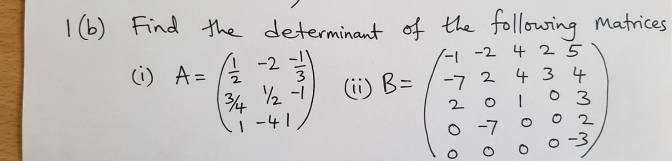 1(b) Find the determinant of the following matrices
(i) A = (1/2 -2 -1/3
3/4 1/2 -1
1 -4 1)
(ii) B = (-1 -2 4 2 5
-7 2 4 3 4
2 0 1 0 3
0 -7 0 0 2
0 0 0 0 -3)